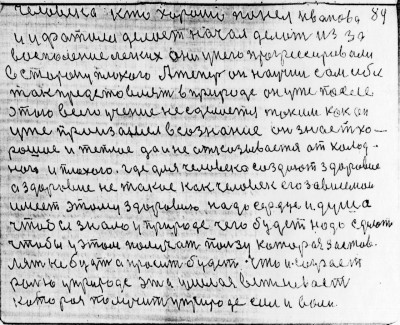 человека кто хорошо понел Иванова 84
и и братими делает начал делать из за
воспаление легких они у него прогрессировали
в сторону плохого А теперь он научил сам себя
так представлять в природе он уже после
этого всего учение не сделается таким как он
уже произашел в сознание он знает хо-
рошее и теплое да и не отказывается от холод-
ного и плохого. где для человека создают здоровие
а здоровие не такие как человек его зависемой
имеет этому здоровию надо сердце и душа
чтобы знало у природе чего будет надо сделать
чтобы у этом получать пользу которая заставл-
лять не будет а просить будет. Что и играет
ролю у природе эта милая вежневаст
которая получит у природе сил и воли.